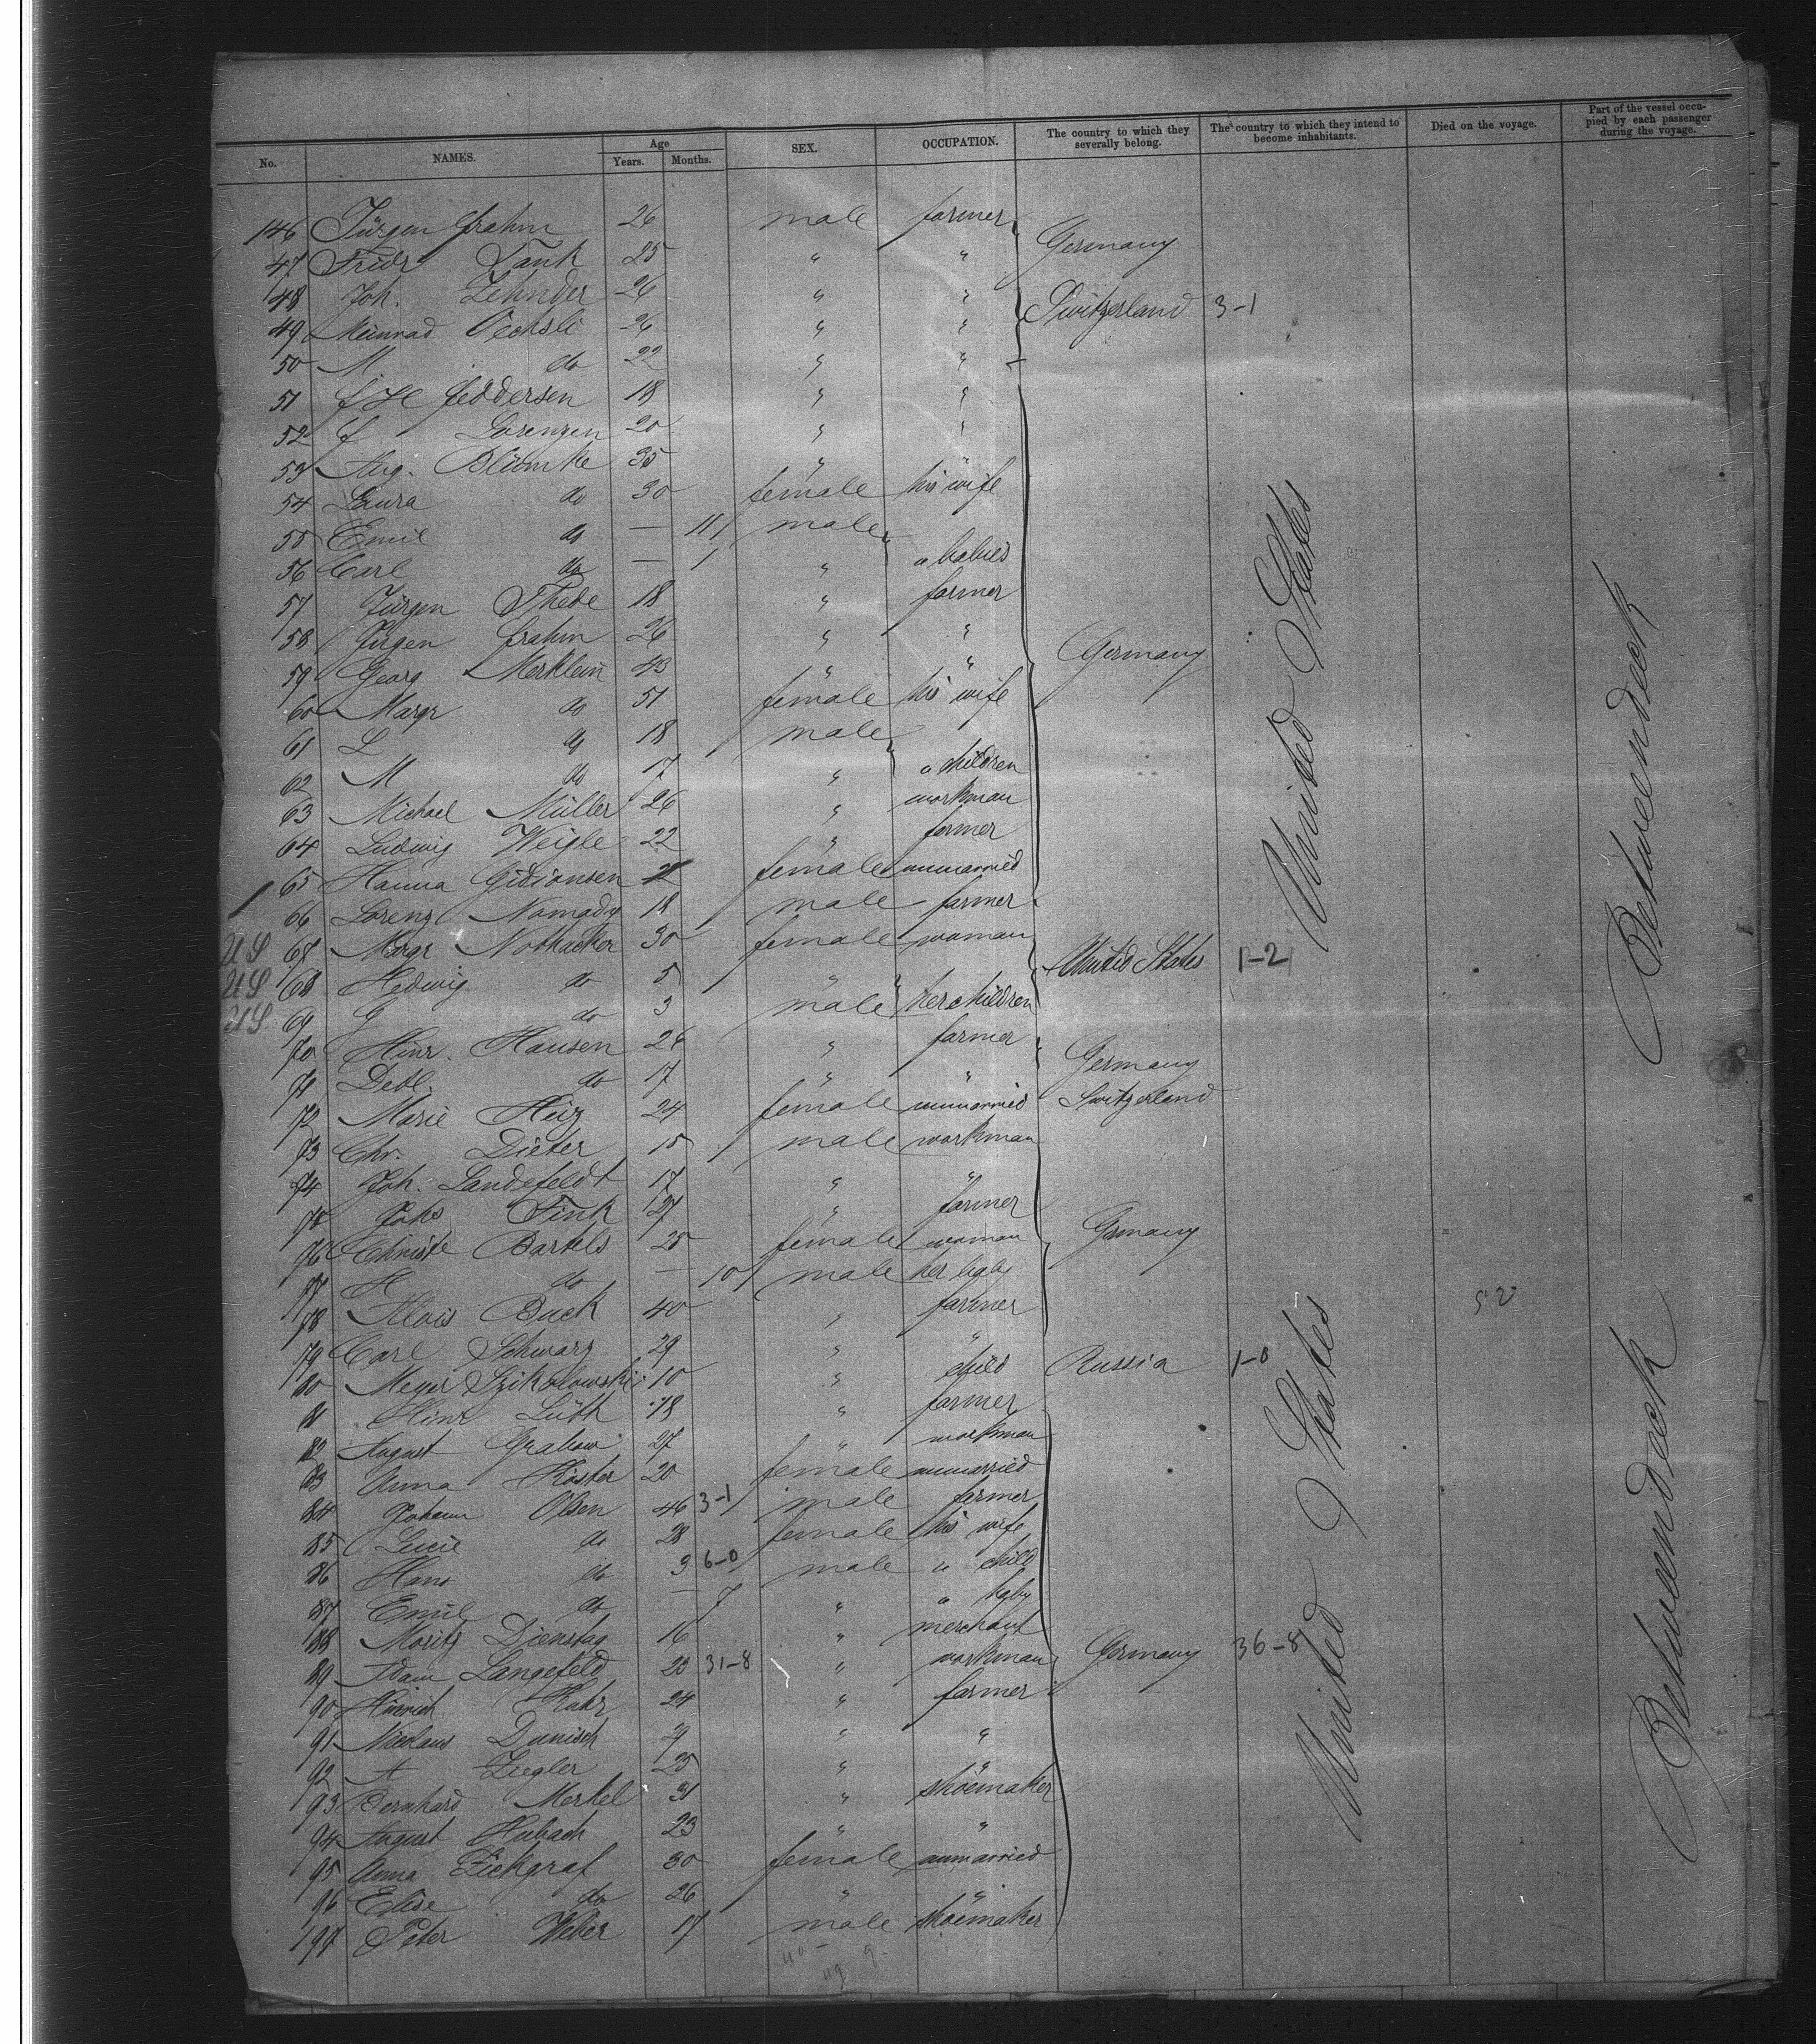 No. NAMES. Age Years. Months. SEX. OCCUPATION. The country to which they severally belong. The country to which they intend to become inhabitants. Died on the voyage. Part of the vessel occupied by each passenger during the voyage.
146 Jürgen Frahm 26 male farmer
47 Friedr Tank 25 " " Germany
48 Joh. Zehnder 26 " "
49 Meinrad Oechsli 26 " " Switzerland 3-1
50 M do 22 " "
51 J H Feddersen 18 " "
52 J Lorenzen 20 " "
53 Aug. Blümke 35 "
54 Laura do 30 female his wife
55 Emil do — 11 male
56 Carl do — 1 " " babies
57 Jürgen Thede 18 " farmer
58 Jürgen Frahm 26 " "
59 Georg Merklein 43 " " Germany
60 Margr do 51 female his wife
61 L do 18 male
62 M do 17 " " children
63 Michael Müller 26 " workman
64 Ludwig Weigle 22 " farmer
65 Hanna Gidionsen female unmarried
66 Lorenz Nomady 18 male farmer
US 68 Margr Nothacker 30 female woman
US 68 Hedwig do 5 " United States 1-2
US 69 G do 3 male her children
70 Hinr. Hansen 26 " farmer
71 Detl. do 17 " " Germany
72 Marie 24 female unmarried Switzerland
73 Chr. Dieter 15 male workman
74 Joh. Landefeldt 17 " "
75 Johs Fink 27 " farmer
76 Christe Bartels 25 female woman Germany
77 H do — 10 male her baby
78 Alois Buck 40 " farmer
79 Carl Schwarz 29 " "
80 Meyer Szikolowski 10 " child Russia 1-0
81 Hinr Lüth 18 " farmer
82 August Grabow 27 " workman
83 Anna Köster 20 female unmarried
84 Johann Olsen 46 3-1 male farmer
85 Lucie do 28 female his wife
86 Hans do 3 6-0 male " child
87 Emil do — 7 " " baby
88 Moritz Dienstag 16 " merchant
89 Adam Langefeld 23 31-8 " workman Germany 36-8
90 Hinrich 24 " farmer
91 Nicolaus Danisch 29 " "
92 A Ziegler 25 " "
93 Bernhard Merkel 31 " shoemaker
94 August Hubach 23 " "
95 Anna Zickgraf 30 female unmarried
96 Elise do 26 " "
197 Peter Weber 17 male shoemaker
United States
United States
Betweendeck
Betweendeck
52